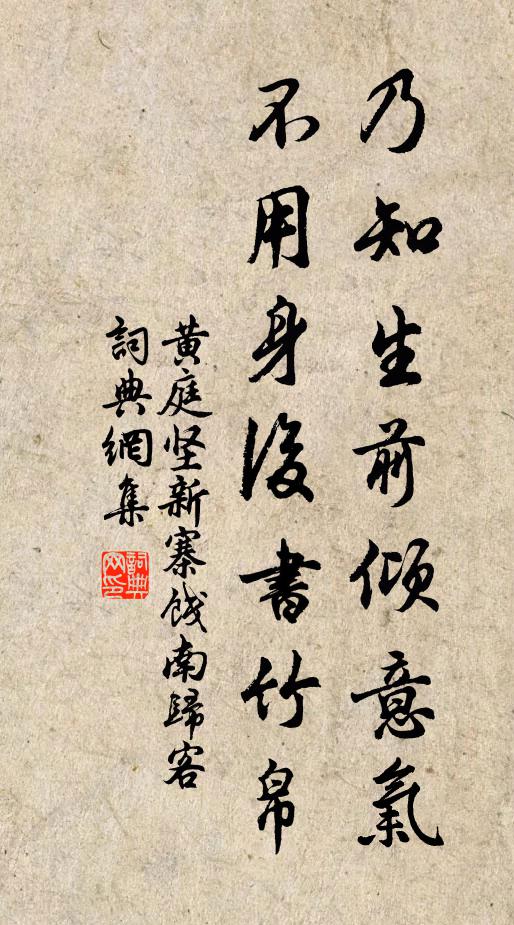 乃知生前傾意氣
不用身後書竹帛
黄庭坚新寨餞南歸客
詞典網集
詞典网印